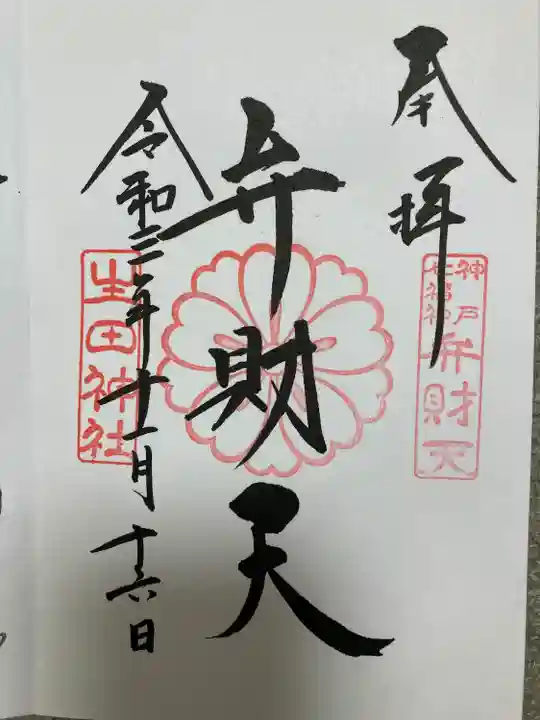 奉拝
神戸
七福神
弁財天
弁財天
令和三年十一月十六日
生田神社